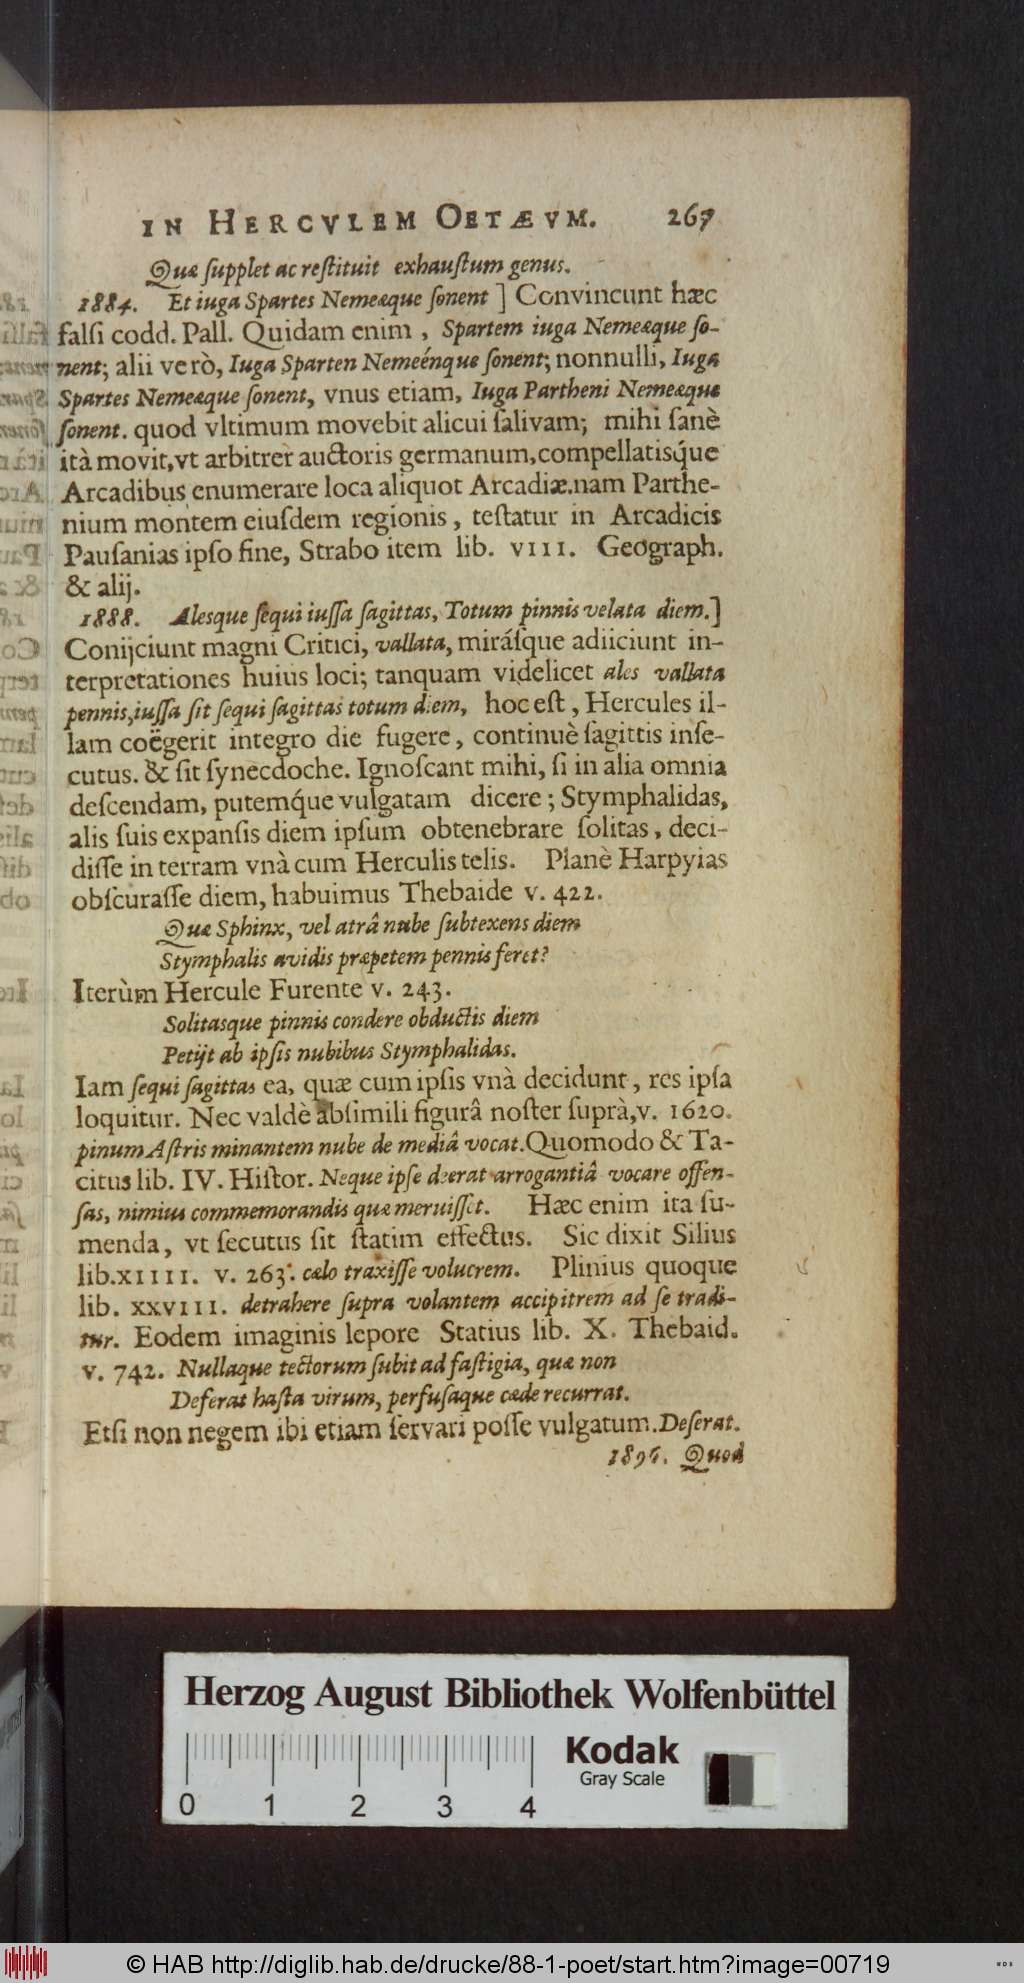 IN HERCVLEM OETÆVM. 267
Quæ ſupplet ac reſtituit exhauſtum genus.
1884. Et iuga Spartes Nemeæque ſonent ] Convincunt hæc
falſi codd. Pall. Quidam enim, Spartem iuga Nemeæque ſo-
nent; alii verò, Iuga Sparten Nemeénque ſonent; nonnulli, Iuga
Spartes Nemeæque ſonent, vnus etiam, Iuga Partheni Nemeæque
ſonent. quod vltimum movebit alicui ſalivam; mihi ſanè
ità movit, vt arbitrer auctoris germanum, compellatisq́ue
Arcadibus enumerare loca aliquot Arcadiæ. nam Parthe-
nium montem eiuſdem regionis, teſtatur in Arcadicis
Pauſanias ipſo fine, Strabo item lib. VIII. Geograph.
& alij.
1888. Alesque ſequi iuſſa ſagittas, Totum pinnis velata diem.]
Conijciunt magni Critici, vallata, miráſque adiiciunt in-
terpretationes huius loci; tanquam videlicet ales vallata
pennis, iuſſa ſit ſequi ſagittas totum diem, hoc eſt, Hercules il-
lam coëgerit integro die fugere, continuè ſagittis inſe-
cutus. & ſit ſynecdoche. Ignoſcant mihi, ſi in alia omnia
deſcendam, putemq́ue vulgatam dicere; Stymphalidas,
alis ſuis expanſis diem ipſum obtenebrare ſolitas, deci-
diſſe in terram vnà cum Herculis telis. Planè Harpyias
obſcuraſſe diem, habuimus Thebaide v. 422.
Quæ Sphinx, vel atrâ nube ſubtexens diem
Stymphalis avidis præpetem pennis feret?
Iterùm Hercule Furente v. 243.
Solitasque pinnis condere obductis diem
Petijt ab ipſis nubibus Stymphalidas.
Iam ſequi ſagittas ea, quæ cum ipſis vnà decidunt, res ipſa
loquitur. Nec valdè abſimili figurâ noſter ſuprà, v. 1620.
pinum Aſtris minantem nube de mediâ vocat. Quomodo & Ta-
citus lib. IV. Hiſtor. Neque ipſe deerat arrogantiâ vocare offen-
ſas, nimius commemorandis quæ meruiſſet. Hæc enim ita ſu-
menda, vt ſecutus ſit ſtatim effectus. Sic dixit Silius
lib. XIIII. v. 263. cælo traxiſſe volucrem. Plinius quoque
lib. XXVIII. detrahere ſupra volantem accipitrem ad ſe tradi-
tur. Eodem imaginis lepore Statius lib. X. Thebaid.
v. 742. Nullaque tectorum ſubit ad faſtigia, quæ non
Deferat haſta virum, perfuſaque cæde recurrat.
Etſi non negem ibi etiam ſervari poſſe vulgatum. Deſerat.
1896. Quod
Herzog August Bibliothek Wolfenbüttel
Kodak
Gray Scale
0 1 2 3 4
© HAB http://diglib.hab.de/drucke/88-1-poet/start.htm?image=00719